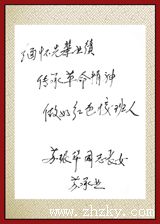 缅怀先辈业绩
传承革命精神
做好红色接班人
苏振华同志长女
苏承业
www.zhzky.com